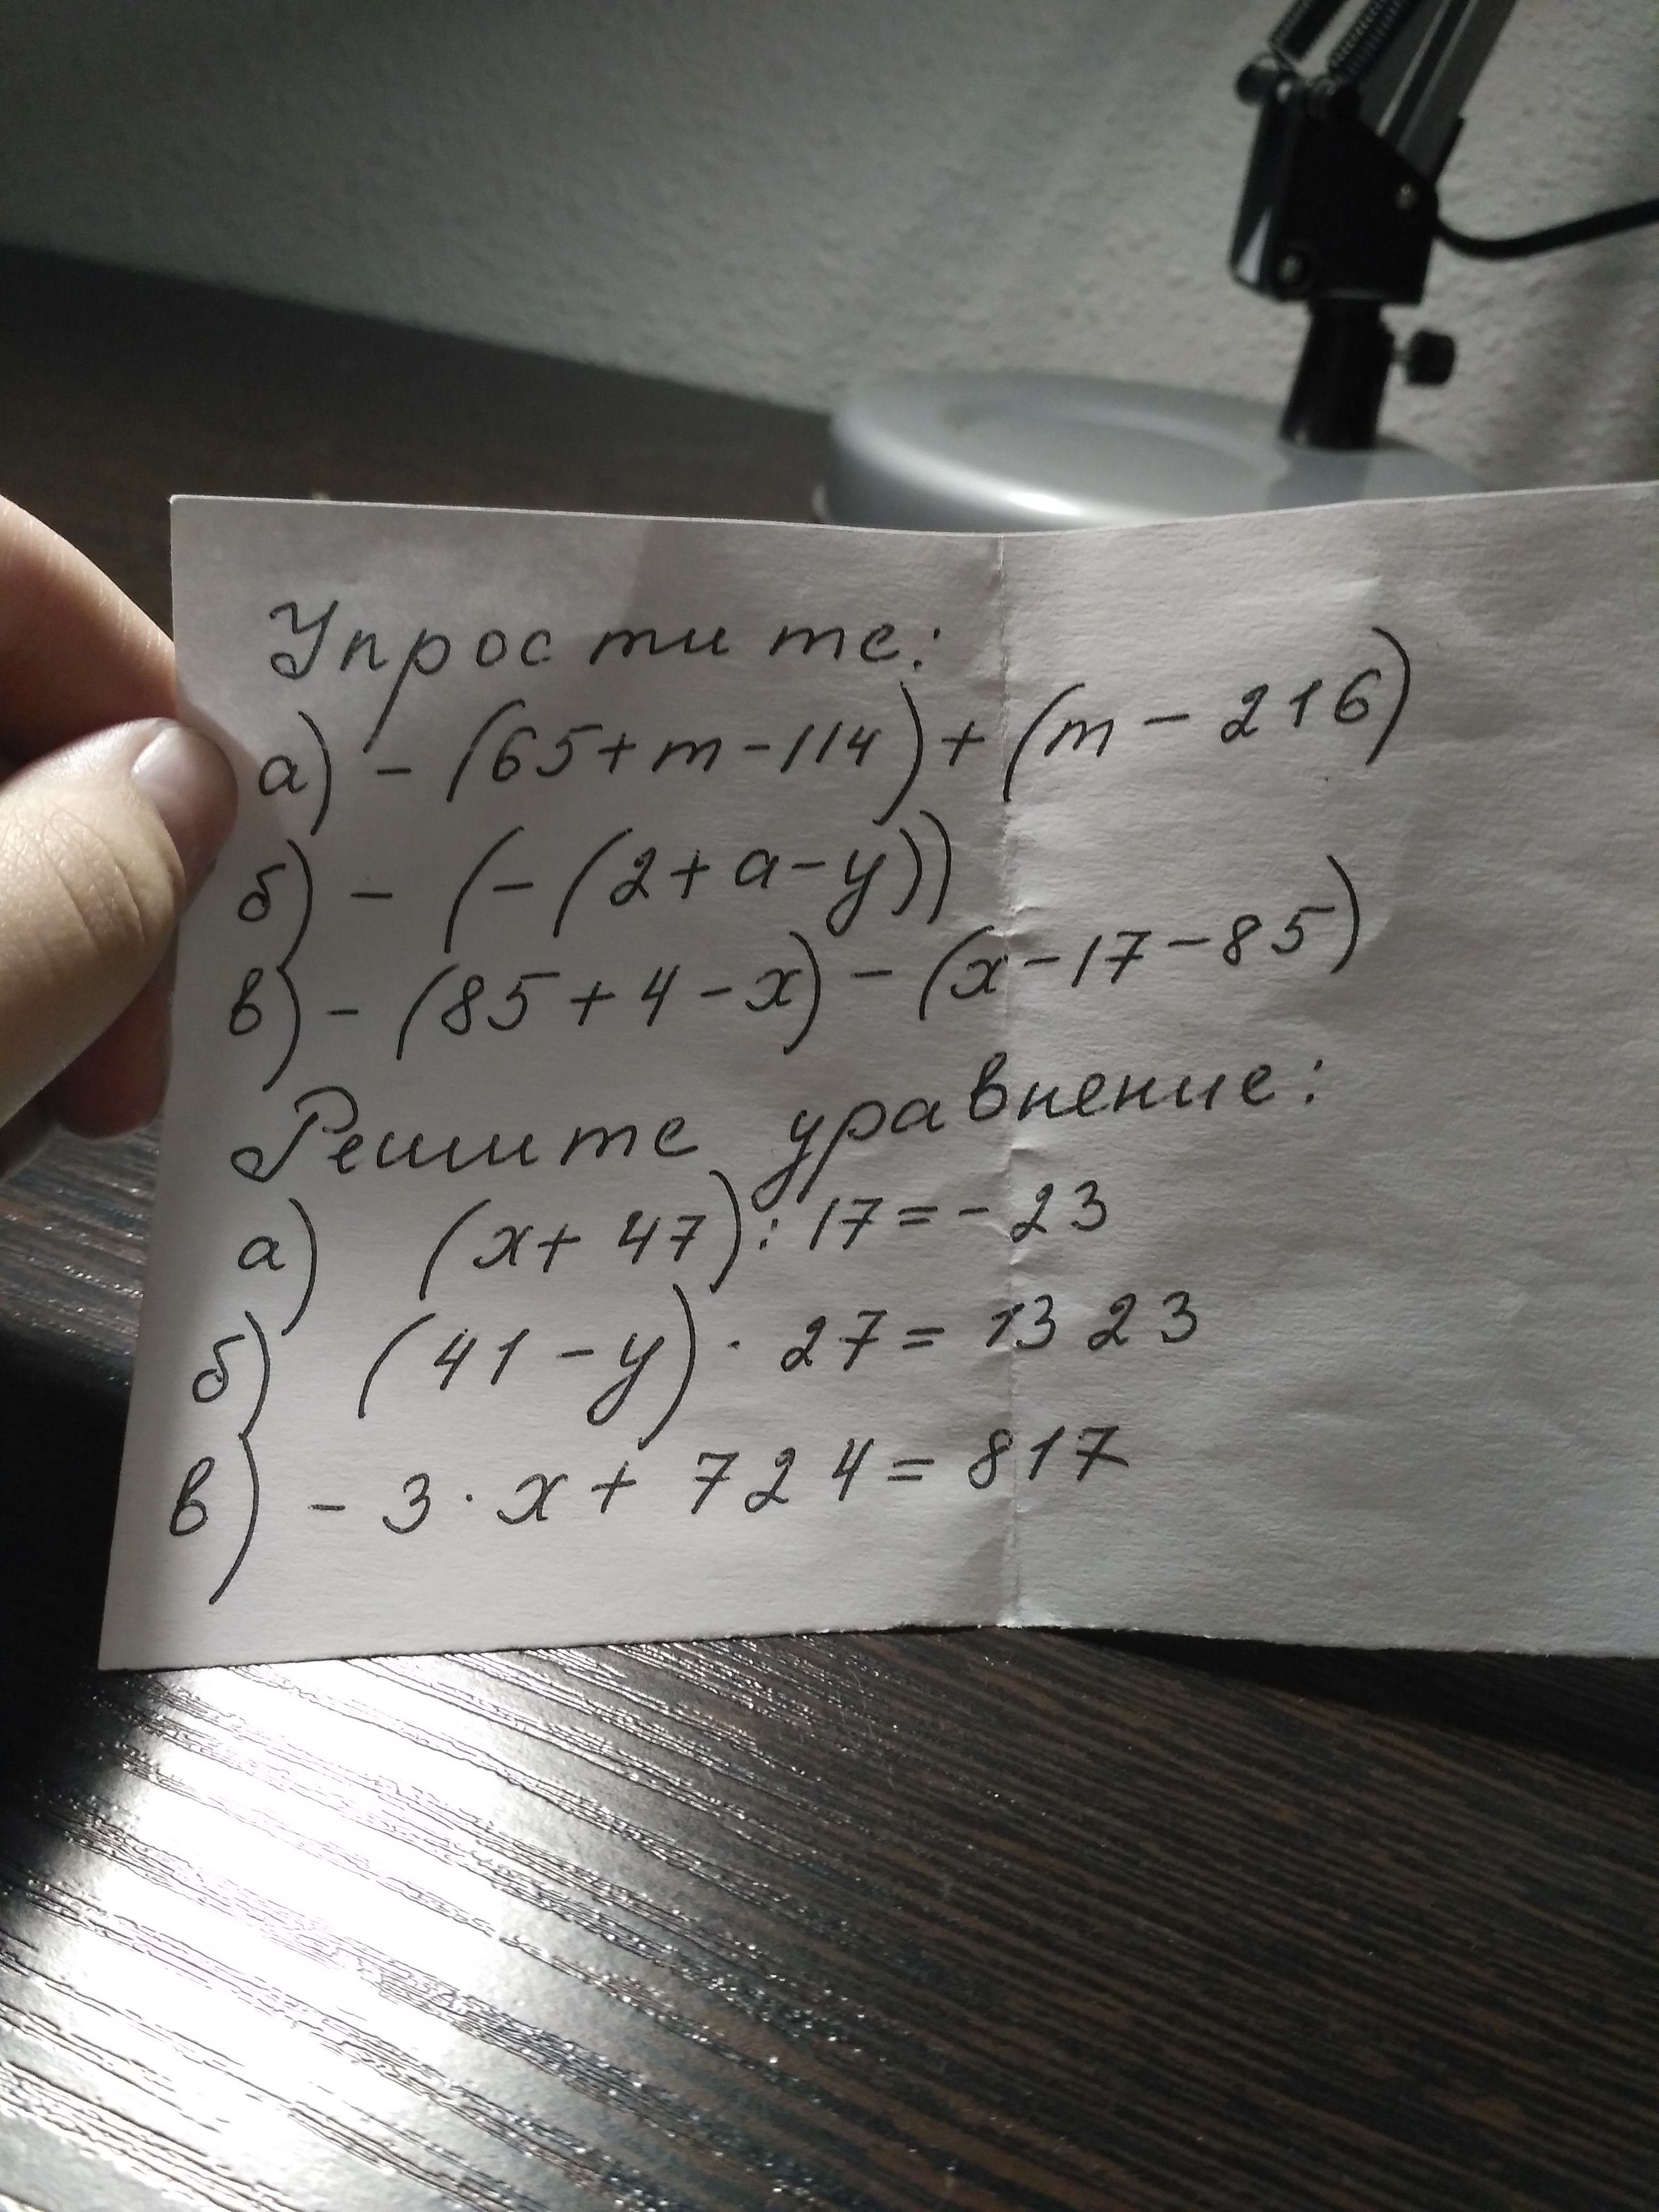 Упростите:
а) - (65+m-114)+(m-216)
б) - (-(2+а-у))
в) - (85+4-х) - (х-17-85)
Решите уравнение:
а) (х+47):17=-23
б) (41-у)·27=1323
в) -3·х+724=817